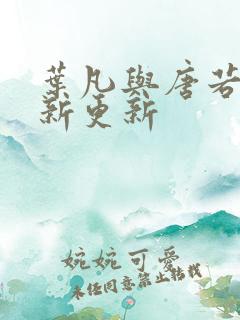 葉凡與唐若
新更新
婉婉可愛
未經同意禁止轉載